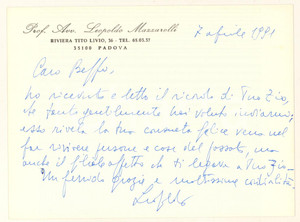 Prof. Avv. Leopoldo Mazzarolli
RIVIERA TITO LIVIO, 36 - TEL.
35100 PADOVA
7 aprile 1991
Caro Beppe,
ho ricevuto e letto il ricordo di
che tanto gentilmente hai voluto inviarmi;
esso rivela la tua consueta felice vena nel
far rivivere persone e cose del passato, ma
anche il affetto che ti legava a
Un fervido grazie e moltissime cordialità
Leopoldo